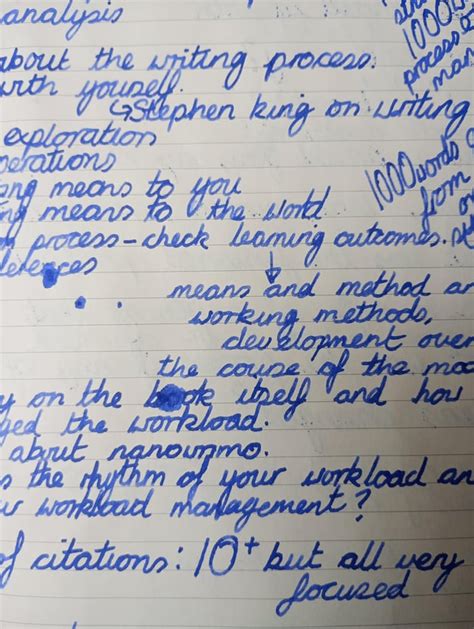 analysis
about the writing process.
with youself.
↳Stephen king on writing
exploration
means to you
means to the world
process – check learning outcomes.
means and method
working methods,
development over
the couse of the
on the book itself and how
the workload.
about nanowrimo.
the rhythm of your workload
workload management?
of citations: 10+ but all very
focused
1000
process
1000 words
from